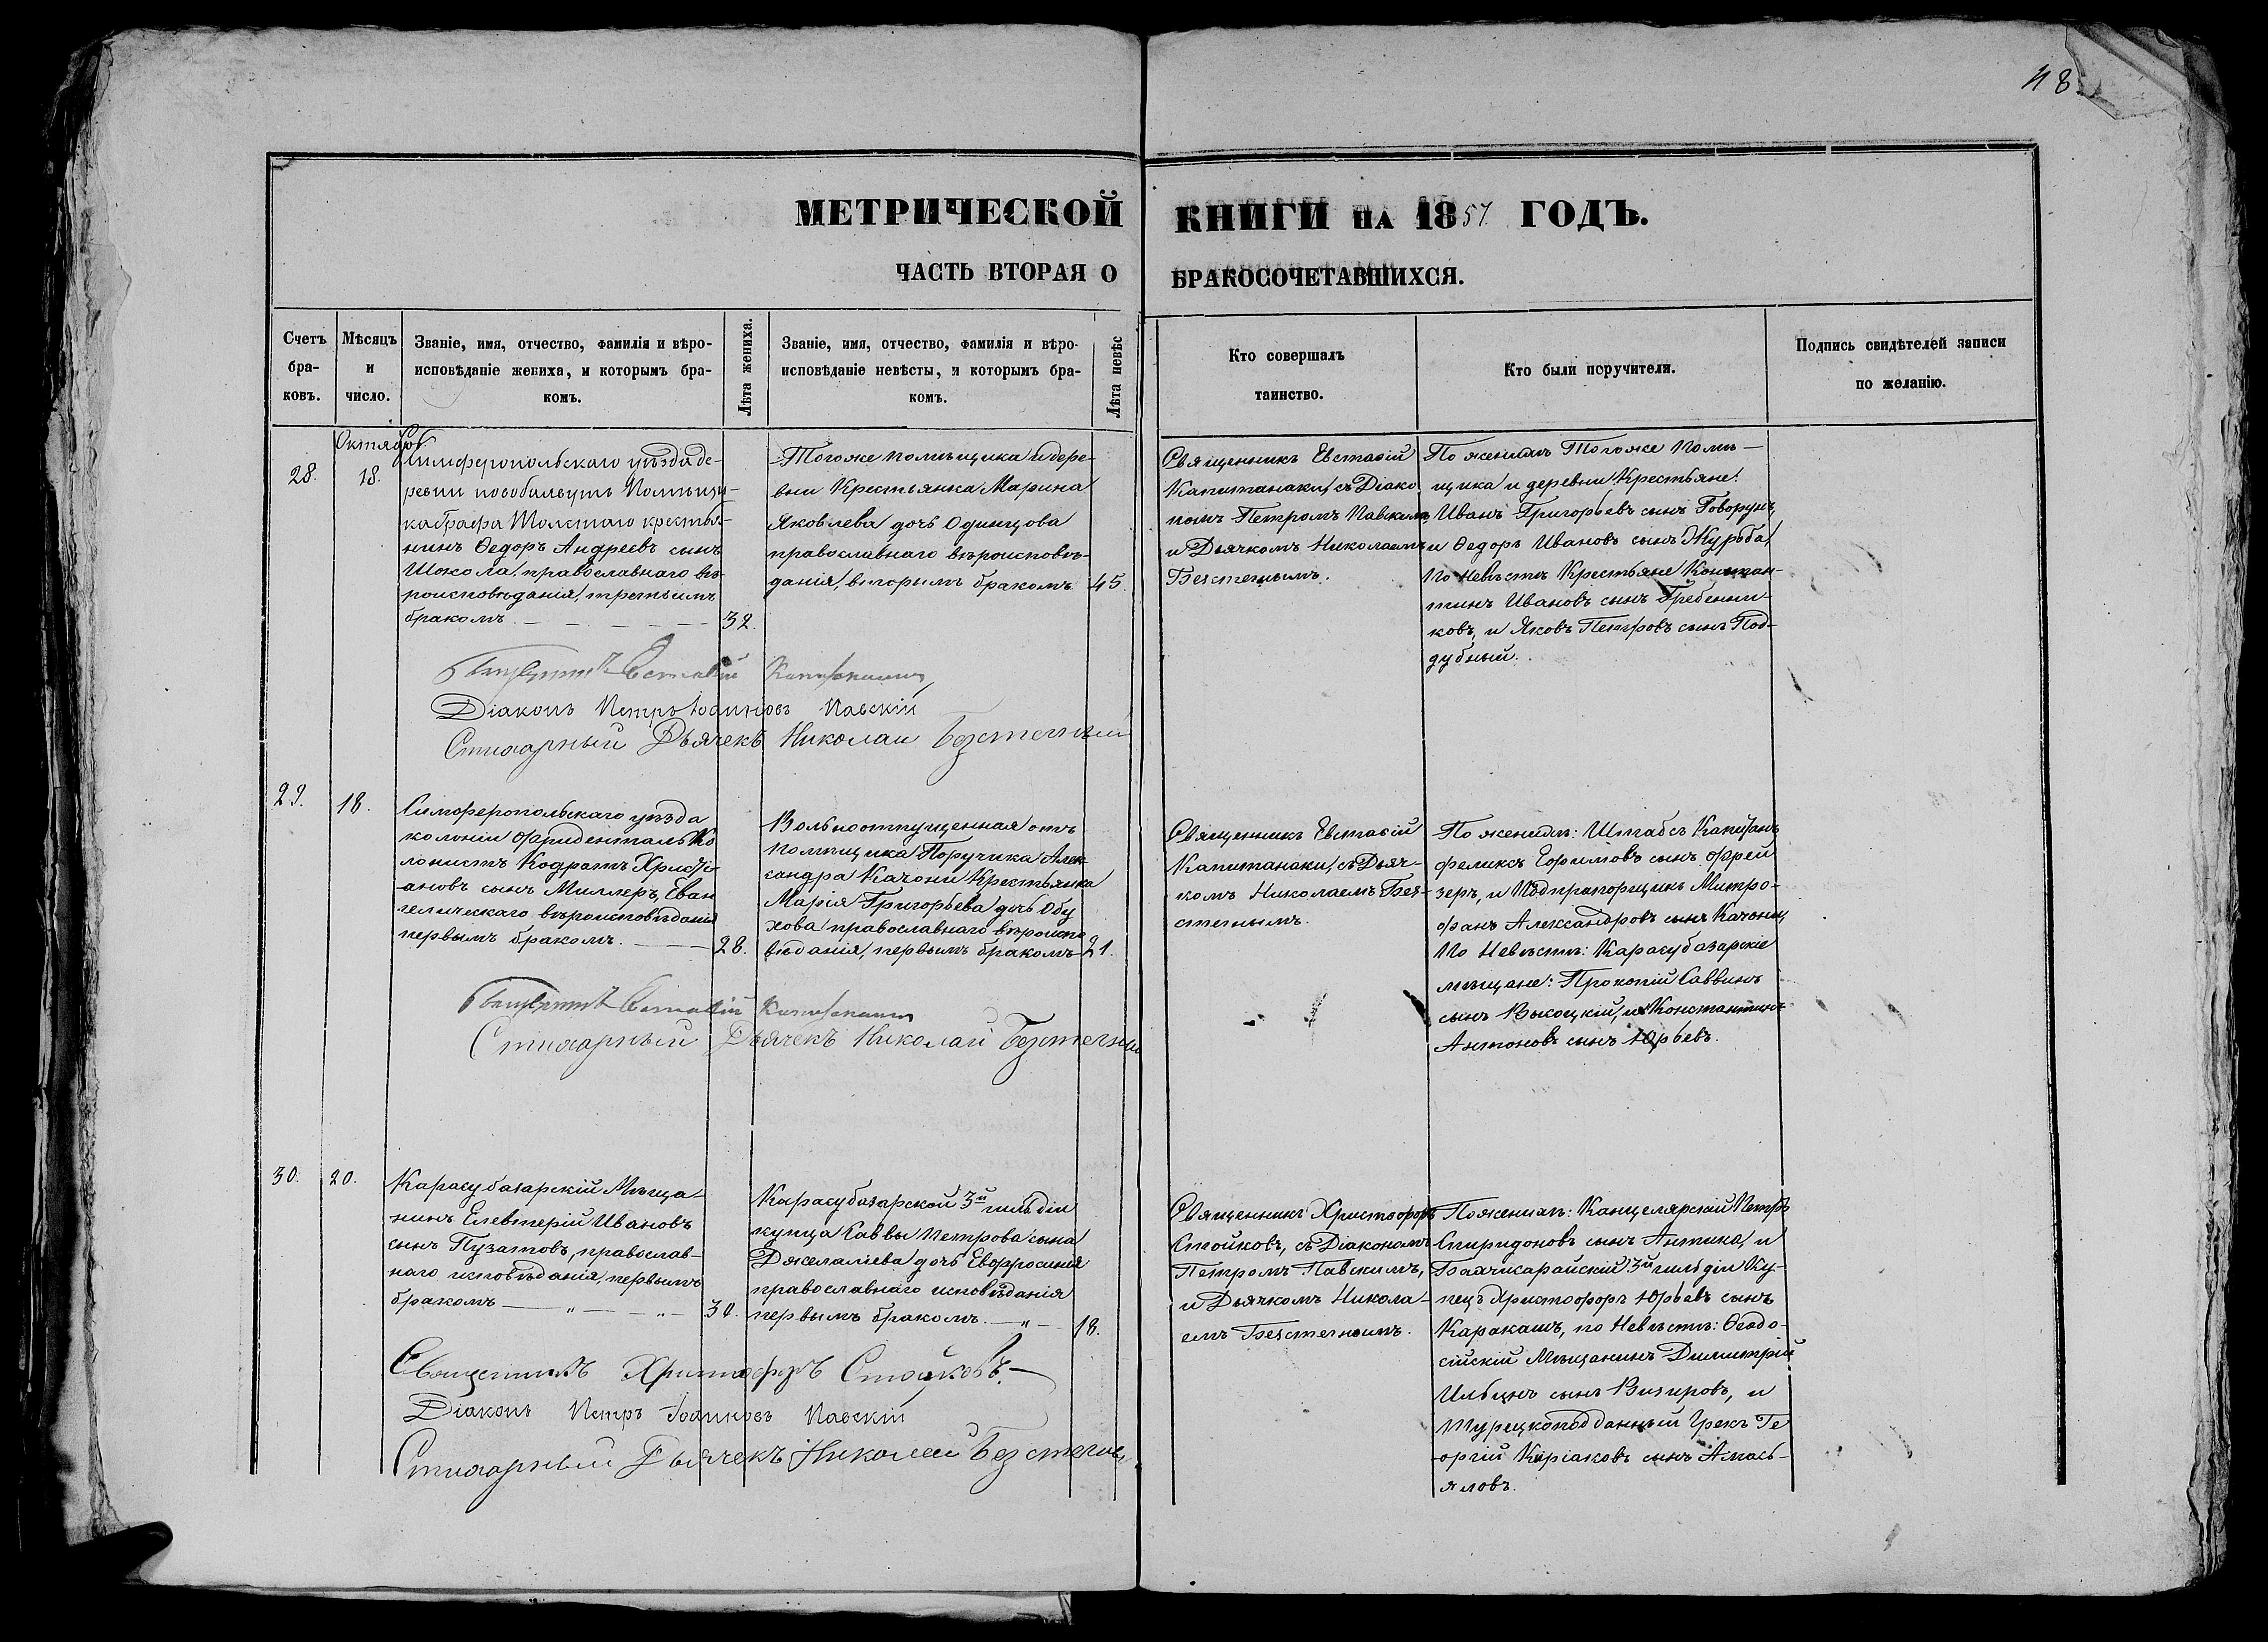 48
МЕТРИЧЕСКОЙ КНИГИ НА 1857 ГОДЪ.
ЧАСТЬ ВТОРАЯ О БРАКОСОЧЕТАВШИХСЯ.
Счетъ
бра-
ковъ.
Мѣсяцъ
и
число.
Званіе, имя, отчество, фамилія и вѣро-
исповѣданіе жениха, и которымъ бра-
комъ.
Лѣта жениха.
Званіе, имя, отчество, фамилія и вѣро-
исповѣданіе невѣсты, и которымъ бра-
комъ.
Лѣта невѣс
Кто совершалъ
таинство.
Кто были поручители.
Подпись свидѣтелей записи
по желанію.
Октября
28.
18.
Симферопольскаго уѣзда де-
ревни Помѣщи-
ка Графа Толстаго крестья-
нинъ Ѳедоръ Андреевъ сынъ
Шокола, православнаго вѣ-
роисповѣданія, третьимъ
бракомъ
32.
Тогоже помѣщика и дере-
вни Крестьянка Марина
Яковлева дочь Одинцова
православнаго вѣроисповѣ-
данія, вторымъ бракомъ
45.
Священникъ Евстаѳій
Капитанаки, съ Діако
номъ Петромъ Павскимъ,
и Дьячкомъ Николаемъ
Безстегнымъ.
По женихѣ Тогоже помѣ-
щика и деревни Крестьяне:
Иванъ Григорьевъ сынъ Говорунъ,
и Ѳедоръ Ивановъ сынъ Журба,
По невѣстѣ Крестьяне Констан-
тинъ Ивановъ сынъ Гребенни-
ковъ, и Яковъ Петровъ сынъ Под-
дубный.
Священникъ Евстаѳій Капитанаки
Діаконъ Петръ Іоанновъ Павскій
Стихарный Дьячекъ Николай Безстегный
29.
18.
Симферопольскаго уѣзда
колоніи Фриденталь Ко
лонистъ Кодратъ Христі-
ановъ сынъ Миллеръ, Еван
гелическаго вѣроисповѣданія
первымъ бракомъ.
28.
Вольноотпущенная отъ
помѣщика Поручика Алек-
сандра Качони Крестьянка
Марія Григорьева дочь Обу
хова православнаго вѣроиспо
вѣданія, первымъ бракомъ
21.
Священникъ Евстаѳій
Капитанаки, съ Дьяч-
комъ Николаемъ Без-
стегнымъ.
По женихѣ: Штабсъ Капитанъ
Феликсъ Ефимовъ сынъ Фрей
зеръ, и Подпрапорщикъ Митро-
фанъ Александровъ сынъ Качони,
По Невѣстѣ: Карасубазарскіе
мѣщане: Прокопій Саввинъ
сынъ Высоцкій, и Константинъ
Антоновъ сынъ Юрьевъ.
Священникъ Евстаѳій Капитанаки
Стихарный Дьячекъ Николай Безстегный
30.
20.
Карасубазарскій Мѣща-
нинъ Елевтерій Ивановъ
сынъ Пузатовъ, православ-
наго исповѣданія, первымъ
бракомъ
30.
Карасубазарской 3й гильдіи
купца Саввы Петрова сына
Джелаліева дочь Евфросинія
православнаго исповѣданія
первымъ бракомъ.
18.
Священникъ Христофоръ
Стойковъ, съ Діакономъ
Петромъ Павскимъ,
и Дьячкомъ Никола-
емъ Безстегнымъ.
По женихѣ: Канцелярскій Петръ
Спиридоновъ сынъ Антика, и
3й гильдіи Ку-
пецъ Христофоръ Юрьевъ сынъ
Каракашъ, по Невѣстѣ: Ѳеодо-
сійскій Мѣщанинъ Димитрій
Ильинъ сынъ Визировъ, и
Турецкоподданный Грекъ Ге
оргій Киріаковъ сынъ Амась-
яловъ.
Священникъ Христофоръ Стойковъ.
Діаконъ Петръ Іоанновъ Павскій
Стихарный Дьячекъ Николай Безстегный